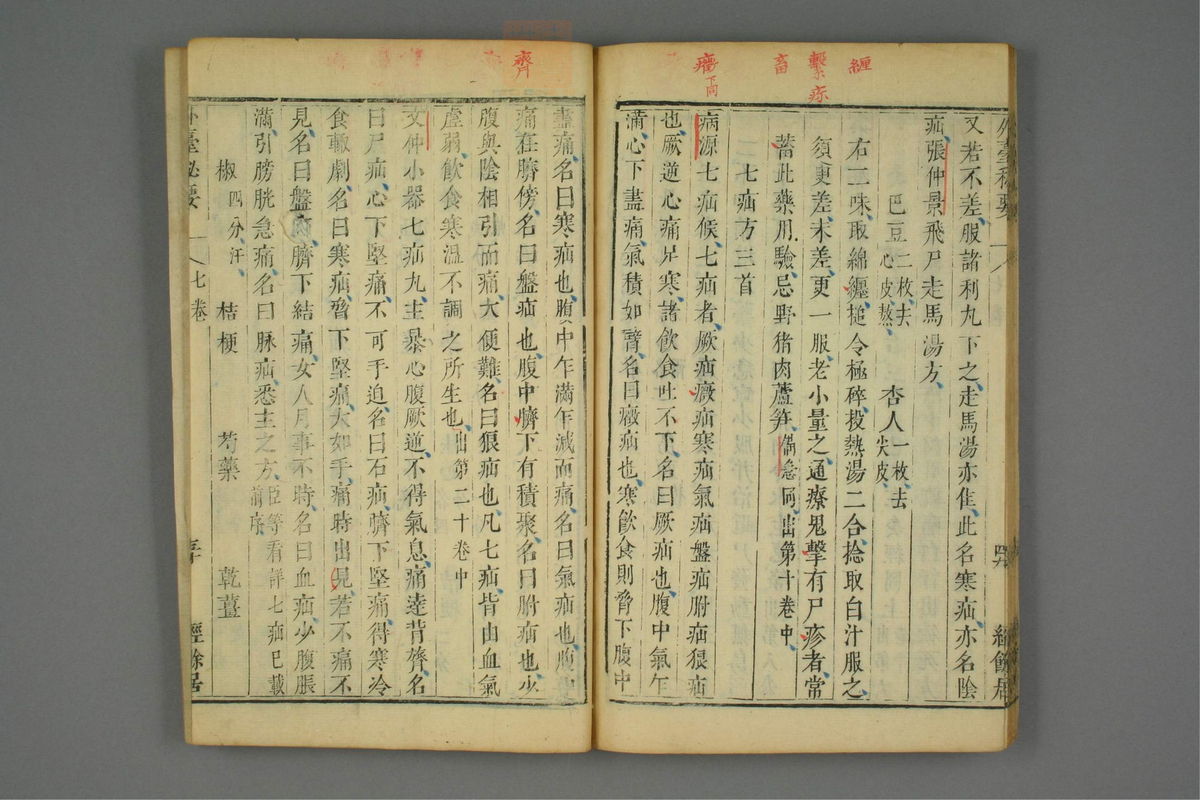 纏
繫疹
畜
下同
又若不差服諸利丸下之走馬湯亦佳此名寒疝亦名陰
疝張仲景飛尸走馬湯方
巴豆二枚去心皮熬 杏人一枚去尖皮
右二味取綿纏搥令極碎投熱湯二合捻取白汁服之
須臾差未差更一服老小量之通療鬼擊有尸疹者常
蓄此藥用驗忌野猪肉蘆笋備急同出第十卷中
七疝方三首
病源七疝候七疝者厥疝癥疝寒疝氣疝盤疝胕疝狼疝
也厥逆心痛足寒諸飲食吐不下名曰厥疝也腹中氣乍
滿心下盡痛氣積如臂名曰癥疝也寒飲食則脅下腹中
齊
盡痛名曰寒疝也腹中乍滿乍減而痛名曰氣疝也腹中
痛在臍傍名曰盤疝也腹中臍下有積聚名曰胕疝也少
腹與陰相引而痛大便難名曰狼疝也凡七疝皆由血氣
虛弱飲食寒溫不調之所生也出第二十卷中
文仲小器七疝丸主暴心腹厥逆不得氣息痛達背膂名
曰尸疝心下堅痛不可手迫名曰石疝臍下堅痛得寒冷
食輒劇名曰寒疝脅下堅痛大如手痛時出見若不痛不
見名曰盤疝臍下結痛女人月事不時名曰血疝少腹脹
滿引膀胱急痛名曰脉疝悉主之方臣等看詳七疝已載前序
椒四分汗 桔梗 芍藥 乾薑
外臺秘要 七卷 經餘居